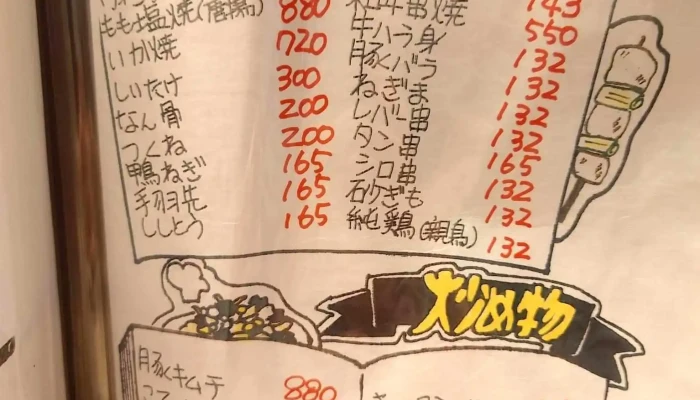 もも塩焼
いか焼
しいたけ
なん骨
つくね
鴨ねぎ
手羽先
ししとう
880
720
300
200
200
165
165
165
串焼
牛ハラ身
豚バラ
ねぎま
レバー串
タン串
シロ串
砂ぎも
純鶏(親鳥)
550
132
132
132
132
165
132
132
132
炒め物
豚キムチ
880